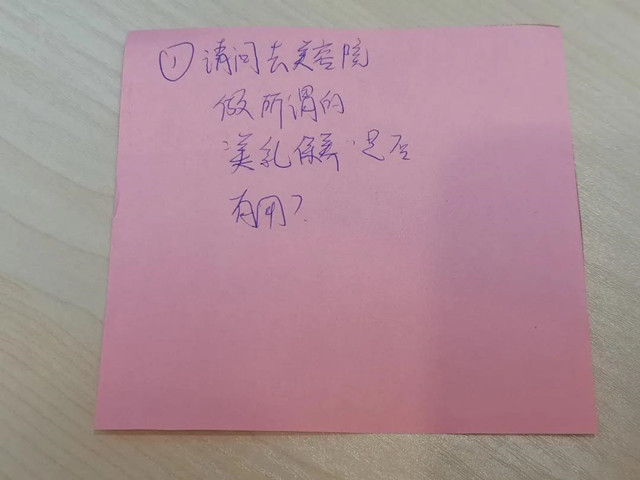 ① 请问去美容院
做所谓的
美乳保养是否
有用?